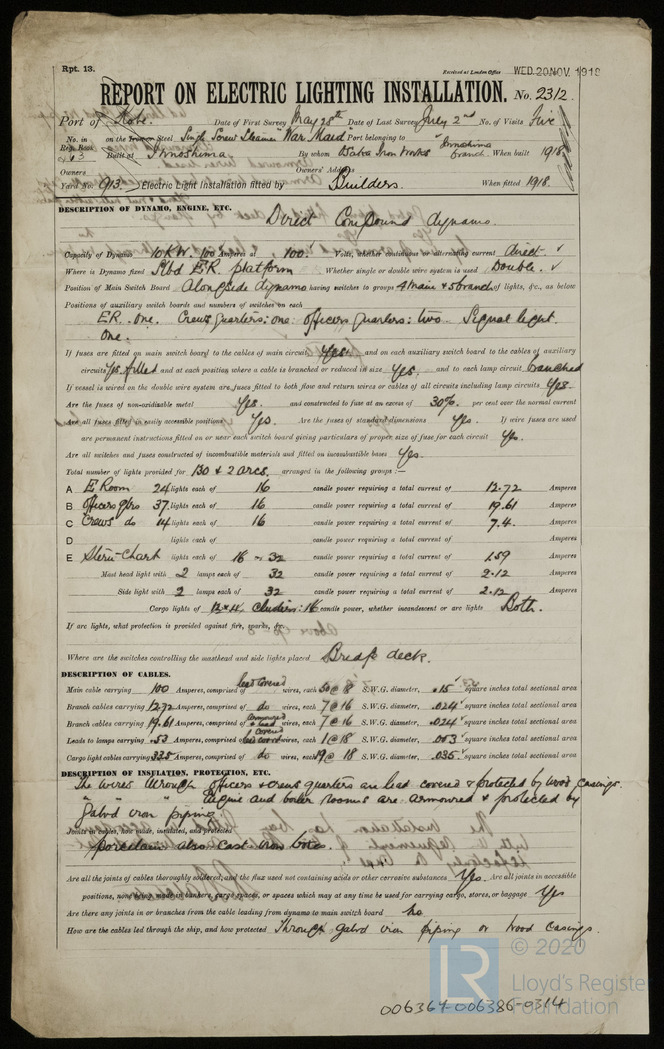 Rpt. 13.
Received at London Office WED. 20 NOV. 1918
REPORT ON ELECTRIC LIGHTING INSTALLATION. No. 2312
Port of Kobe. Date of First Survey May 28th Date of Last Survey July 2nd No. of Visits Five
No. in Reg. Book on the Iron or Steel Single Screw Steamer "War Maid" Port belonging to
Built at Innoshima By whom Osaka Iron Works Innoshima branch. When built 1918
Owners Owners' Address
Yard No. 913 Electric Light Installation fitted by Builders. When fitted 1918.
DESCRIPTION OF DYNAMO, ENGINE, ETC.
Direct Compound dynamo.
Capacity of Dynamo 10 KW. 100 Amperes at 100 Volts, whether continuous or alternating current direct
Where is Dynamo fixed Stbd E.R. platform Whether single or double wire system is used Double.
Position of Main Switch Board Alongside dynamo having switches to groups 4 main & 5 branch of lights, &c., as below
Positions of auxiliary switch boards and numbers of switches on each
E.R. one. Crews quarters: one. officers quarters: two. Signal light
One.
If fuses are fitted on main switch board to the cables of main circuit Yes. and on each auxiliary switch board to the cables of auxiliary
circuits Yes fitted and at each position where a cable is branched or reduced in size Yes. and to each lamp circuit branched
If vessel is wired on the double wire system are fuses fitted to both flow and return wires or cables of all circuits including lamp circuits Yes.
Are the fuses of non-oxidizable metal Yes. and constructed to fuse at an excess of 30%. per cent over the normal current
Are all fuses fitted in easily accessible positions Yes. Are the fuses of standard dimensions Yes. If wire fuses are used
are permanent instructions fitted on or near each switch board giving particulars of proper size of fuse for each circuit Yes.
Are all switches and fuses constructed of incombustible materials and fitted on incombustible bases Yes.
Total number of lights provided for 130 & 2 arcs. arranged in the following groups:—
A E. Room 24 lights each of 16 candle power requiring a total current of 12.72 Amperes
B Officers qtrs 37 lights each of 16 candle power requiring a total current of 19.61 Amperes
C Crews do 14 lights each of 16 candle power requiring a total current of 7.4 Amperes
D lights each of candle power requiring a total current of Amperes
E Stern-Chart lights each of 16 & 32 candle power requiring a total current of 1.59 Amperes
Mast head light with 2 lamps each of 32 candle power requiring a total current of 2.12 Amperes
Side light with 2 lamps each of 32 candle power requiring a total current of 2.12 Amperes
Cargo lights of clusters: 16 candle power, whether incandescent or arc lights Both.
If arc lights, what protection is provided against fire, sparks, &c.
Where are the switches controlling the masthead and side lights placed Bridge deck.
DESCRIPTION OF CABLES.
Main cable carrying 100 Amperes, comprised of lead covered wires, each 50 @ 18 S.W.G. diameter, .15 square inches total sectional area
Branch cables carrying 12.72 Amperes, comprised of do wires, each 7 @ 16 S.W.G. diameter, .024 square inches total sectional area
Branch cables carrying 19.61 Amperes, comprised of armoured & lead wires, each 7 @ 16 S.W.G. diameter, .024 square inches total sectional area
Leads to lamps carrying .53 Amperes, comprised of covered wires, each 1 @ 18 S.W.G. diameter, .003 square inches total sectional area
Cargo light cables carrying Amperes, comprised of do wires, each 19 @ 18 S.W.G. diameter, .035 square inches total sectional area
DESCRIPTION OF INSULATION, PROTECTION, ETC.
The wires through officers & crews quarters are lead covered & protected by wood casings.
" " " Engine and boiler rooms are armoured & protected by
galvd iron piping.
Joints in cables, how made, insulated, and protected
porcelain also cast iron boxes.
Are all the joints of cables thoroughly soldered, and the flux used not containing acids or other corrosive substances Yes. Are all joints in accessible
positions, none being made in bunkers, cargo spaces, or spaces which may at any time be used for carrying cargo, stores, or baggage Yes
Are there any joints in or branches from the cable leading from dynamo to main switch board No
How are the cables led through the ship, and how protected Through galvd iron piping or wood casings.
© 2020
Lloyd's Register
Foundation
LR
006364-006386-0314